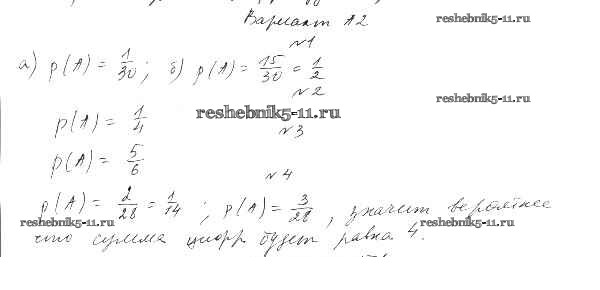 Вариант А2
reshebnik5-11.ru
№1
а) p(A) = 1/30; б) p(A) = 15/30 = 1/2
№2
reshebnik5-11.ru
p(A) = 1/4
reshebnik5-11.ru
№3
p(A) = 5/6
№4
p(A) = 2/28 = 1/14 ; p(A) = 3/28 , значит вероятнее
reshebnik5-11.ru
reshebnik5-11.ru
что сумма цифр будет равна 4.